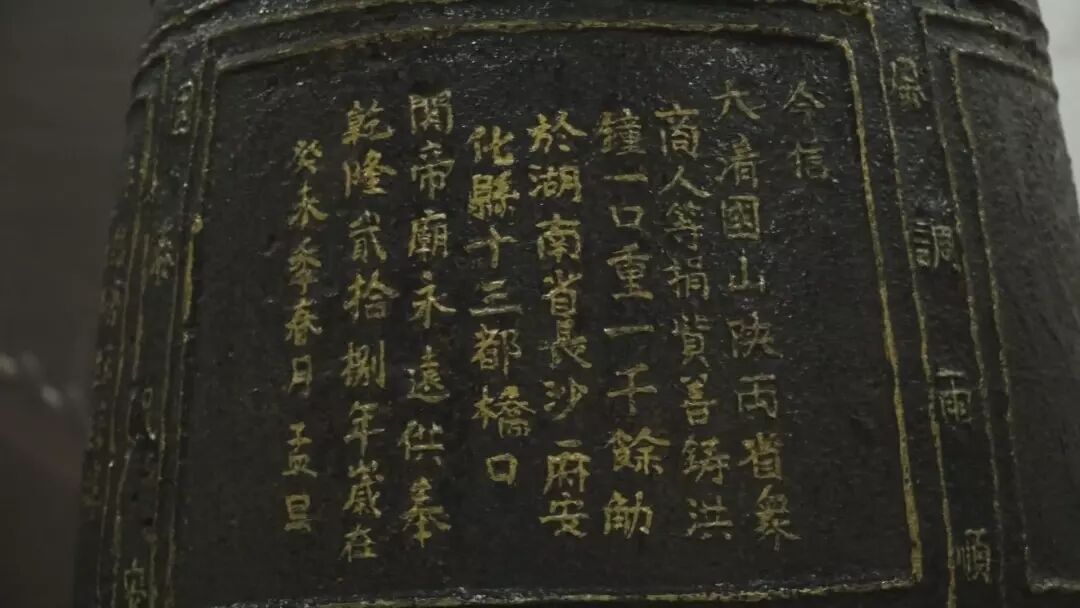 風調雨順
今信
大清國山陝兩省衆
商人等捐貲善鑄洪
鐘一口重一千餘觔
於湖南省長沙府安
化縣十三都橋口
關帝廟永遠供奉
乾隆貳拾捌年歲在
癸未季春月孟旦